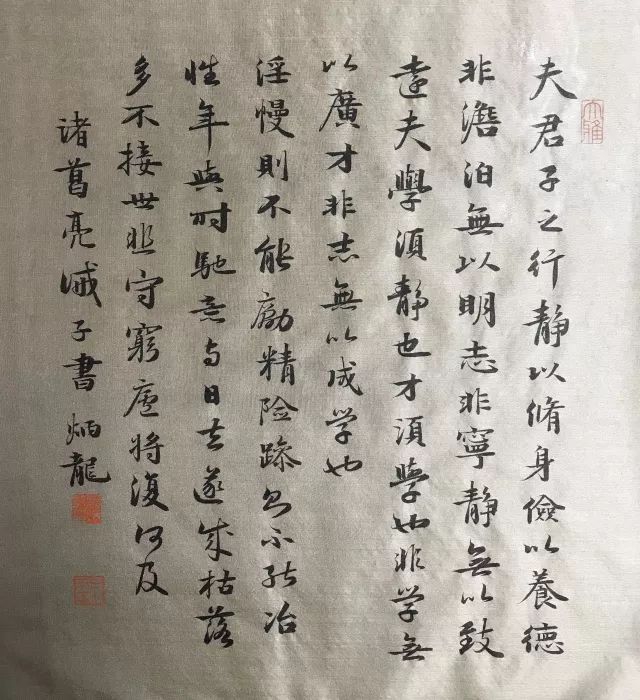 夫君子之行静以脩身儉以養德
非澹泊無以明志非寧静無以致
遠夫學須静也才須學也非学無
以廣才非志無以成学也
淫慢則不能勵精险躁则不能冶
性年與时馳意与日去遂成枯落
多不接世悲守窮廬将復何及
诸葛亮诫子書炳龍